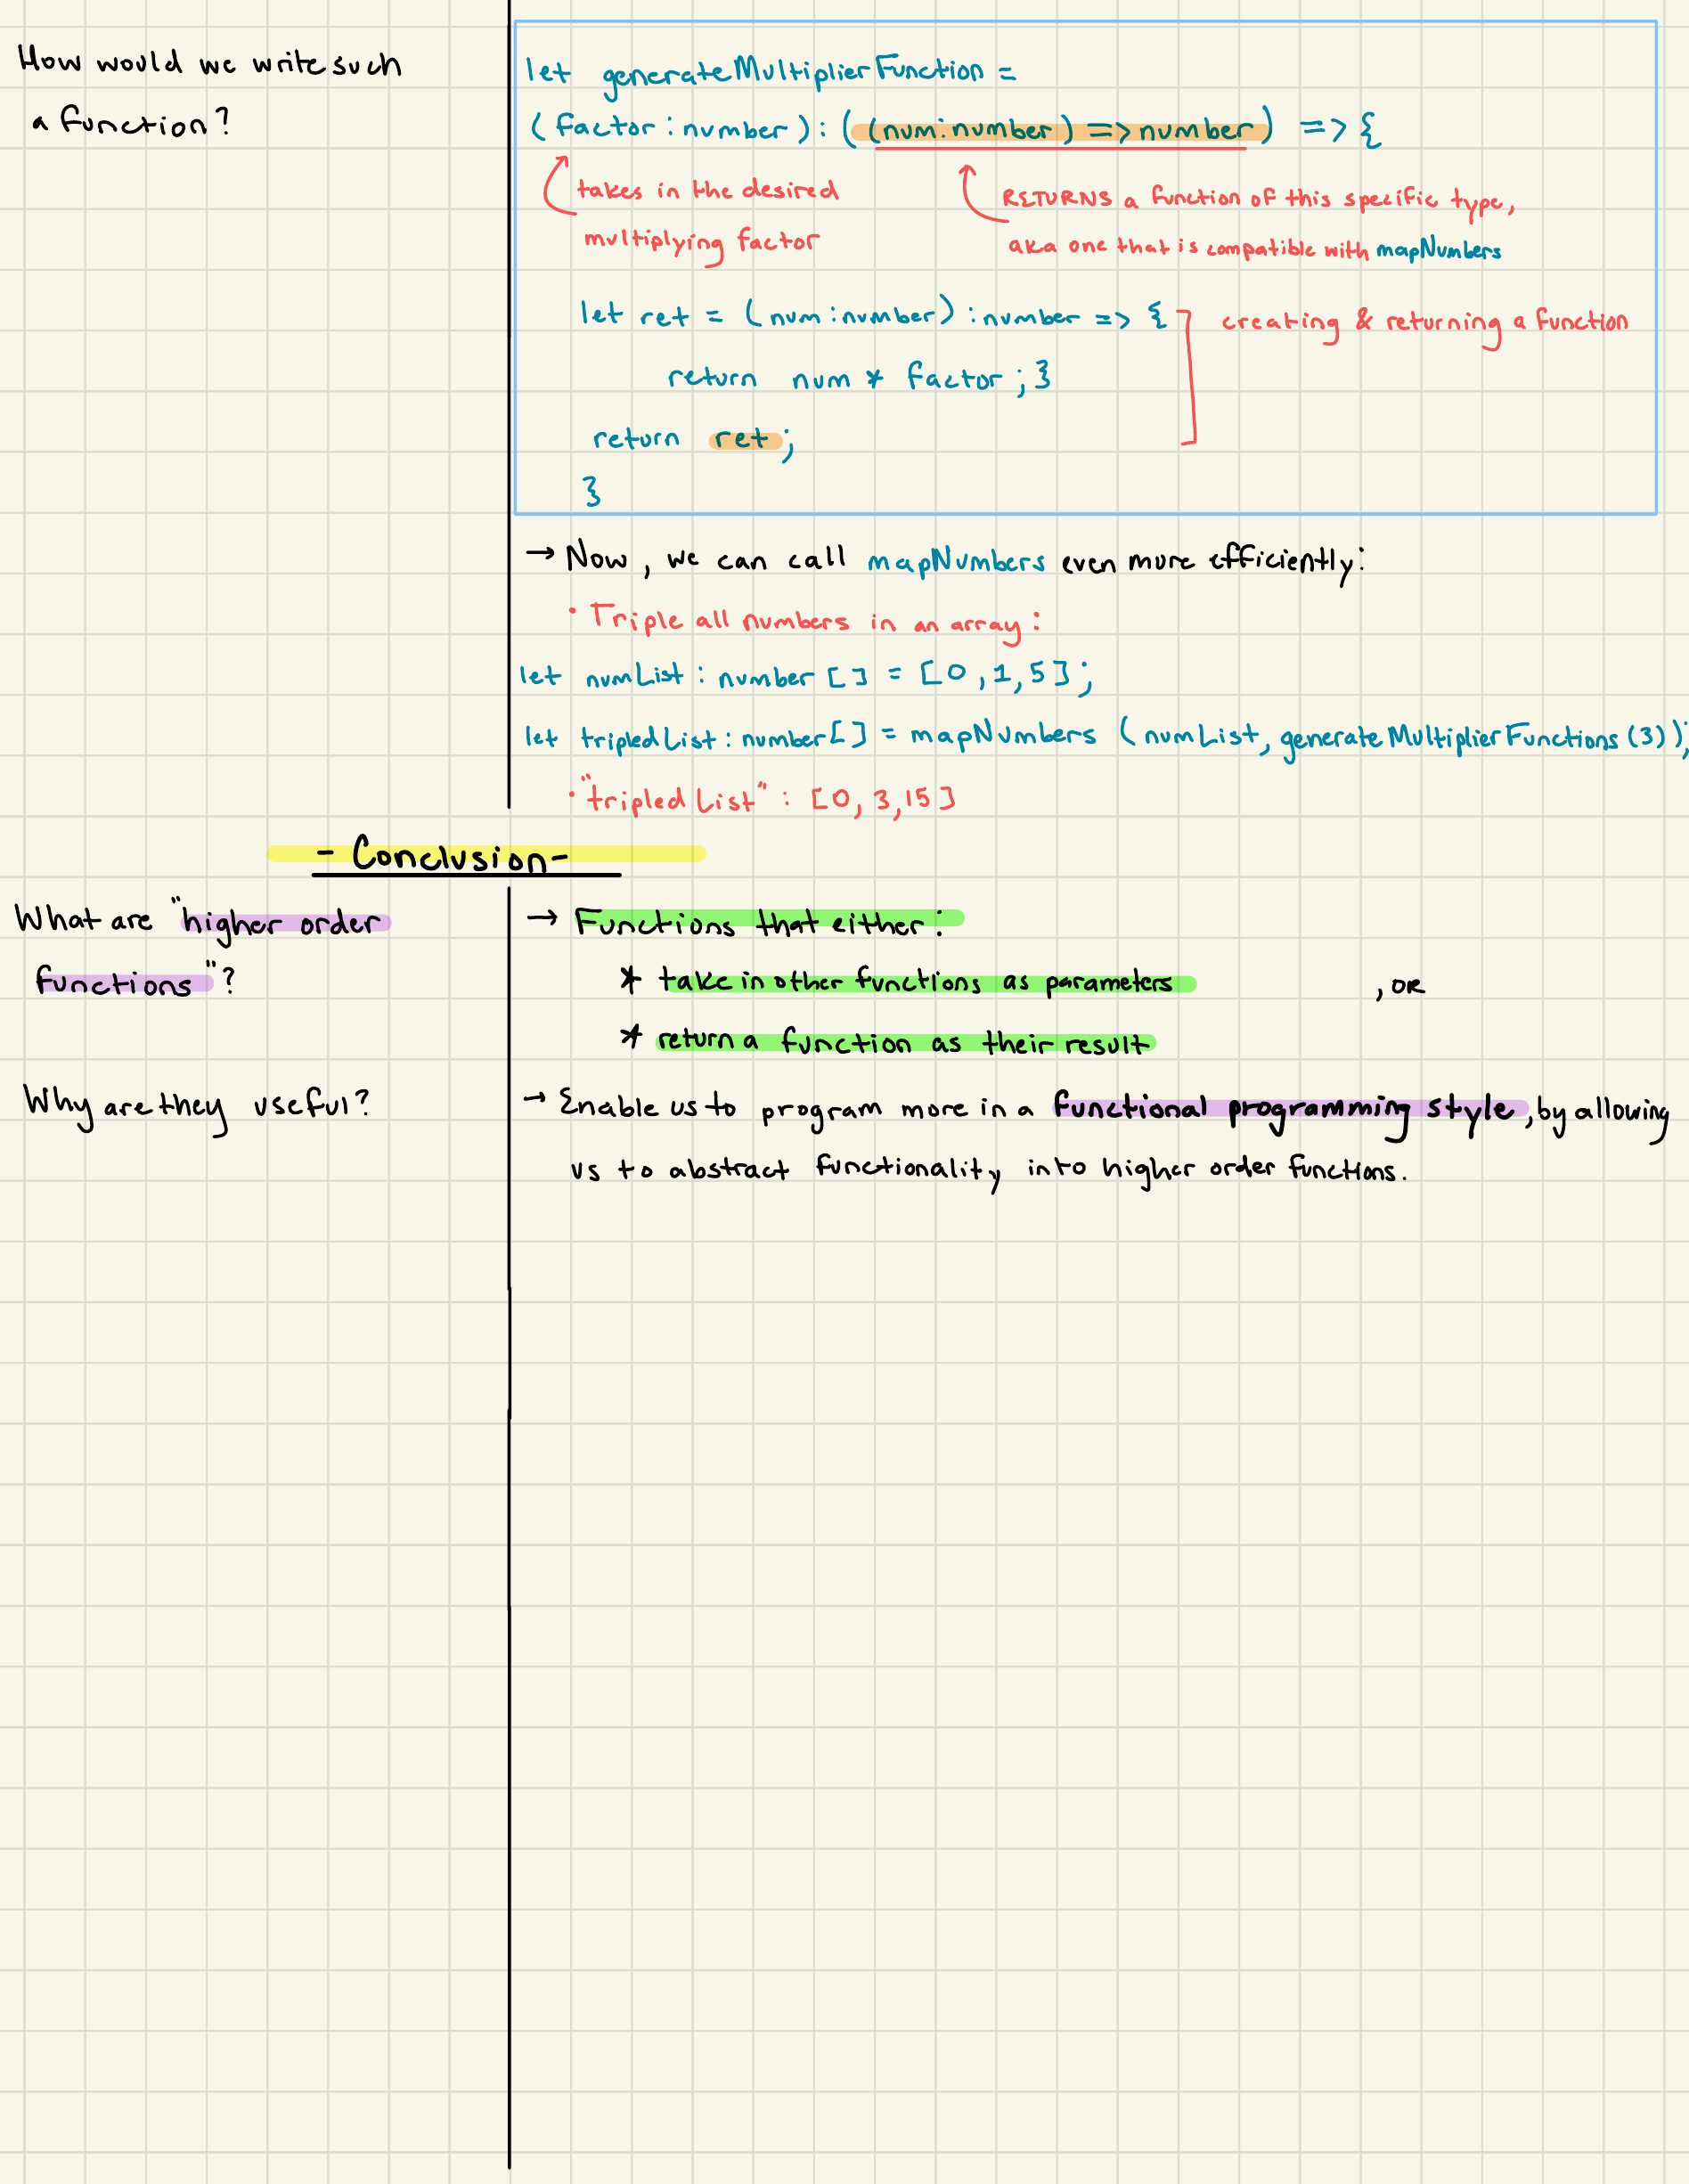 How would we write such
a function?
let generateMultiplierFunction =
(factor:number): ((num:number) => number) => {
takes in the desired
multiplying factor
RETURNS a function of this specific type,
aka one that is compatible with mapNumbers
let ret = (num:number):number => {
creating & returning a function
return num * factor;}
return ret;
}
→ Now, we can call mapNumbers even more efficiently:
• Triple all numbers in an array:
let numList: number[] = [0,1,5];
let tripledList: number[] = mapNumbers (numList, generateMultiplierFunctions(3));
• "tripledList": [0,3,15]
- Conclusion-
What are "higher order
functions"?
→ Functions that either:
* take in other functions as parameters , OR
* return a function as their result
Why are they useful?
→ Enable us to program more in a functional programming style, by allowing
us to abstract functionality into higher order functions.